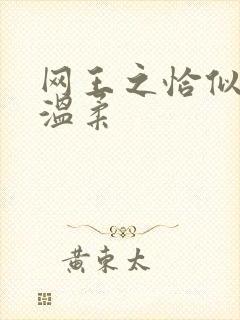 网王之恰似
温柔
黄东太